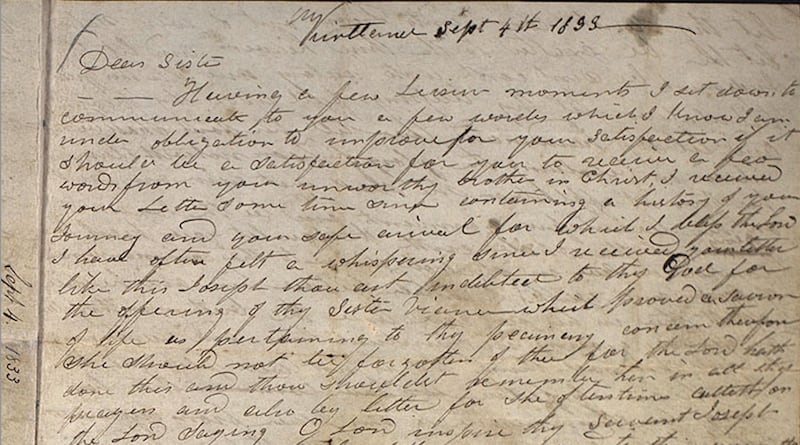 Kirtland Sept 4th 1833
Dear Siste
— — Haveing a few Leisur moments I set down to
communicate to you a few words which I know I am
under obligation to improve for your Satisfaction if it
should be a satisfaction for you to receive a few
words from your unworthy brother in Christ, I received
your Letter some time since containing a history of your
Journey and your safe arival for which I bless the Lord
I have often felt a whispering since I received your letter
like this Joseph thou art indebted to thy God for
the offering of thy Sister Viana which proved a savour
of life as pertaining to thy pecuniary concern therefore
she should not be forgotten of thee for the Lord hath
done this and thou shouldst remember her in all thy
prayers and also by letter for she oftentimes calleth on
the Lord saying O Lord inspire thy Servant Joseph
Sept 4. 1833